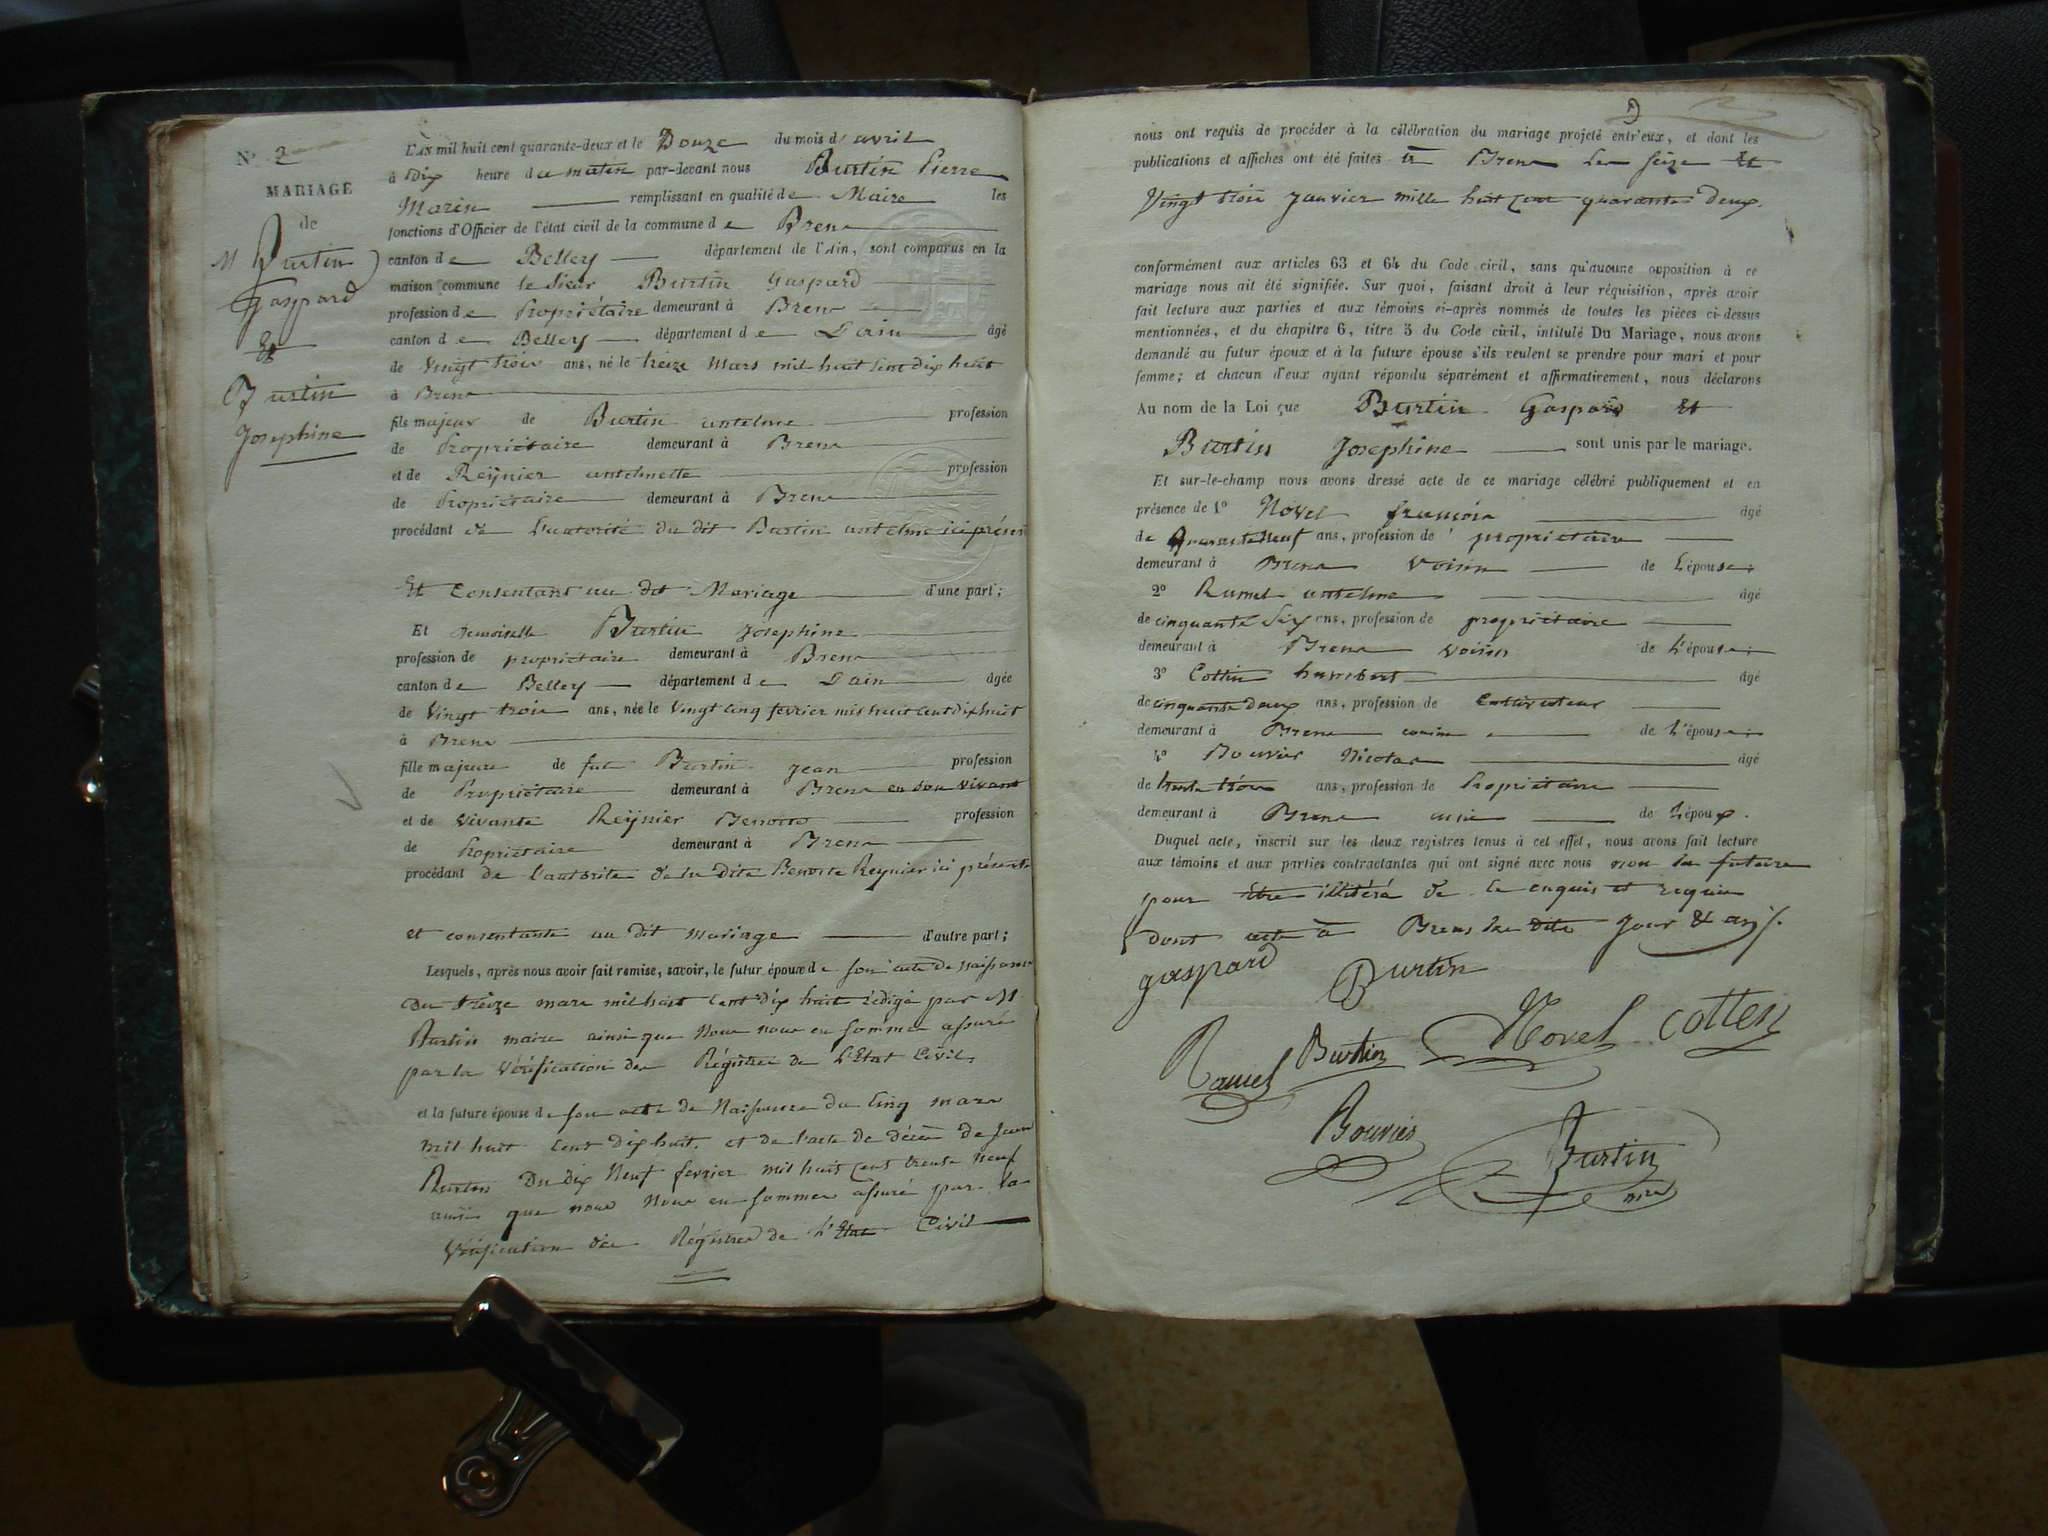 N° 2
MARIAGE
de
M Burtin
Gaspard
Et
Burtin
Josephine
L'AN mil huit cent quarante-deux et le Douze du mois d'avril
à Dix heure du matin par-devant nous Burtin Pierre
Marin remplissant en qualité de Maire les
fonctions d'Officier de l'état civil de la commune de Brens
canton de Belley département de l'Ain, sont comparus en la
maison commune le sieur Burtin Gaspard
profession de Propriétaire demeurant à Brens
canton de Belley département de L'ain âgé
de Vingt trois ans, né le treize Mars mil huit Cent Dix huit
à Brens
fils majeur de Burtin antelme profession
de Propriétaire demeurant à Brens
et de Reynier antelmette profession
de Propriétaire demeurant à Brens
procédant de L'autorité du dit Burtin antelme ici présent
Et Consentant au dit Mariage d'une part;
Et Demoiselle Burtin Josephine
profession de propriétaire demeurant à Brens
canton de Belley département de L'ain âgée
de Vingt trois ans, née le Vingt cinq fevrier mil huit cent dix huit
à Brens
fille majeure de feu Burtin Jean profession
de Propriétaire demeurant à Brens en son vivant
et de vivante Reynier Benoite profession
de Propriétaire demeurant à Brens
procédant de L'autorité de la dite Benoite Reynier ici présente
et consentante au dit mariage d'autre part;
Lesquels, après nous avoir fait remise, savoir, le futur époux de son acte de Naissance
du treize mars mil huit cent dix huit rédigé par M
Burtin maire ainsi que Nous nous en sommes assuré
par la Vérification des Régistres de L'Etat Civil
et la future épouse de son acte de Naissance du Cinq mars
mil huit Cent dix huit. et de l'acte de décès de Jean
Burtin Du dix Neuf fevrier mil huit cent trente neuf
ainsi que nous Nous en sommes assuré par la
Vérification des Régistres de L'Etat Civil
nous ont requis de procéder à la célébration du mariage projeté entr'eux, et dont les
publications et affiches ont été faites à Brens les seize Et
Vingt trois Janvier mille huit Cent quarante deux.
conformément aux articles 63 et 64 du Code civil, sans qu'aucune opposition à ce
mariage nous ait été signifiée. Sur quoi, faisant droit à leur réquisition, après avoir
fait lecture aux parties et aux témoins ci-après nommés de toutes les pièces ci-dessus
mentionnées, et du chapitre 6, titre 5 du Code civil, intitulé Du Mariage, nous avons
demandé au futur époux et à la future épouse s'ils veulent se prendre pour mari et pour
femme; et chacun d'eux ayant répondu séparément et affirmativement, nous déclarons
Au nom de la Loi que Burtin Gaspard Et
Burtin Josephine sont unis par le mariage.
Et sur-le-champ nous avons dressé acte de ce mariage célébré publiquement et en
présence de 1° Novel françois âgé
de Quarante Neuf ans, profession de propriétaire
demeurant à Brens Voisin de L'épouse
2° Ramel antelme âgé
de cinquante Six ans, profession de propriétaire
demeurant à Brens voisin de L'épouse
3° Cottin humbert âgé
de cinquante deux ans, profession de Cultivateur
demeurant à Brens cousin de L'épouse
4° Bouvier Nicolas âgé
de trente trois ans, profession de Propriétaire
demeurant à Brens ami de L'époux.
Duquel acte, inscrit sur les deux registres tenus à cet effet, nous avons fait lecture
aux témoins et aux parties contractantes qui ont signé avec nous non la future
pour être illitéré de ce enquis et requis
dont acte à Brens les dits Jour & an
gaspard Burtin
Ramel Burtin Novel Cotten
Bouvier Burtin
mre